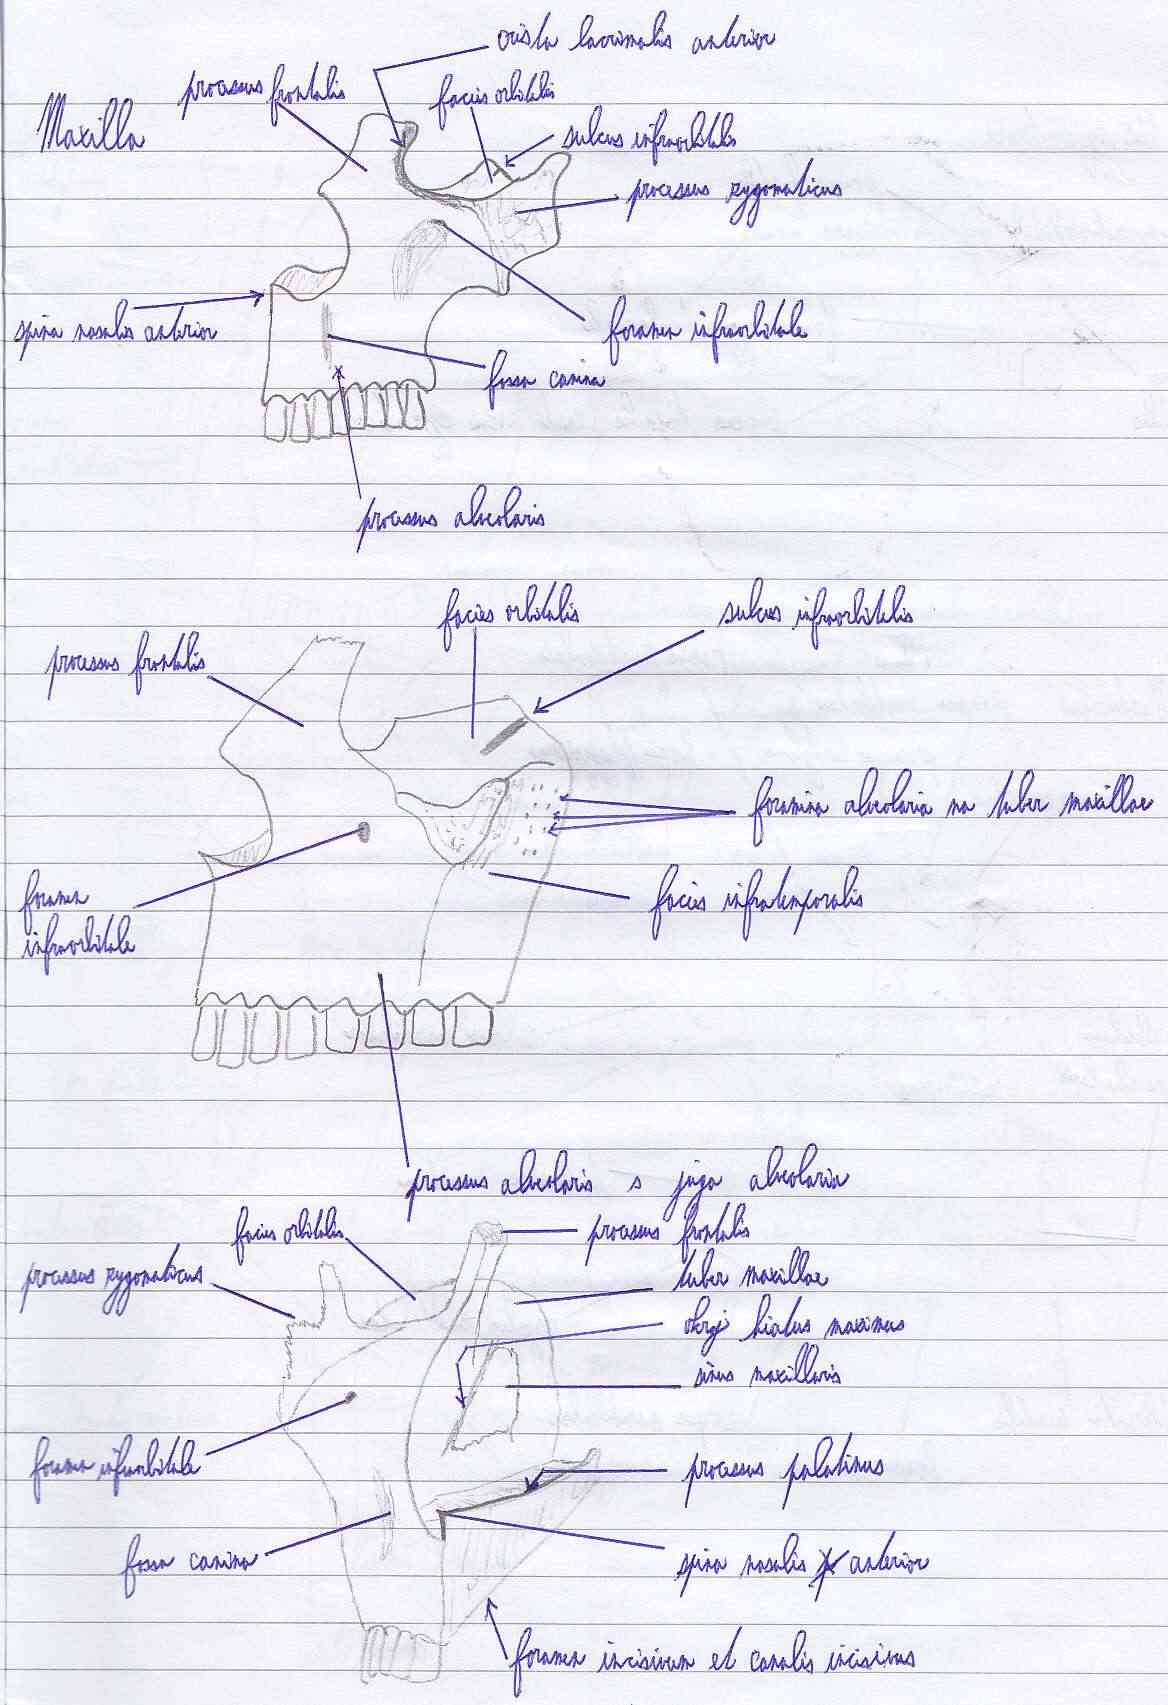 Maxilla
crista lacrimalis anterior
processus frontalis
facies orbitalis
sulcus infraorbitalis
processus zygomaticus
spina nasalis anterior
foramen infraorbitale
fossa canina
processus alveolaris
facies orbitalis
sulcus infraorbitalis
processus frontalis
foramina alveolaria na tuber maxillae
foramen
infraorbitale
facies infratemporalis
processus alveolaris s juga alveolaria
facies orbitalis
processus frontalis
processus zygomaticus
tuber maxillae
hiatus maximus
sinus maxillaris
foramen infraorbitale
processus palatinus
fossa canina
spina nasalis anterior
foramen incisivum et canalis incisivus